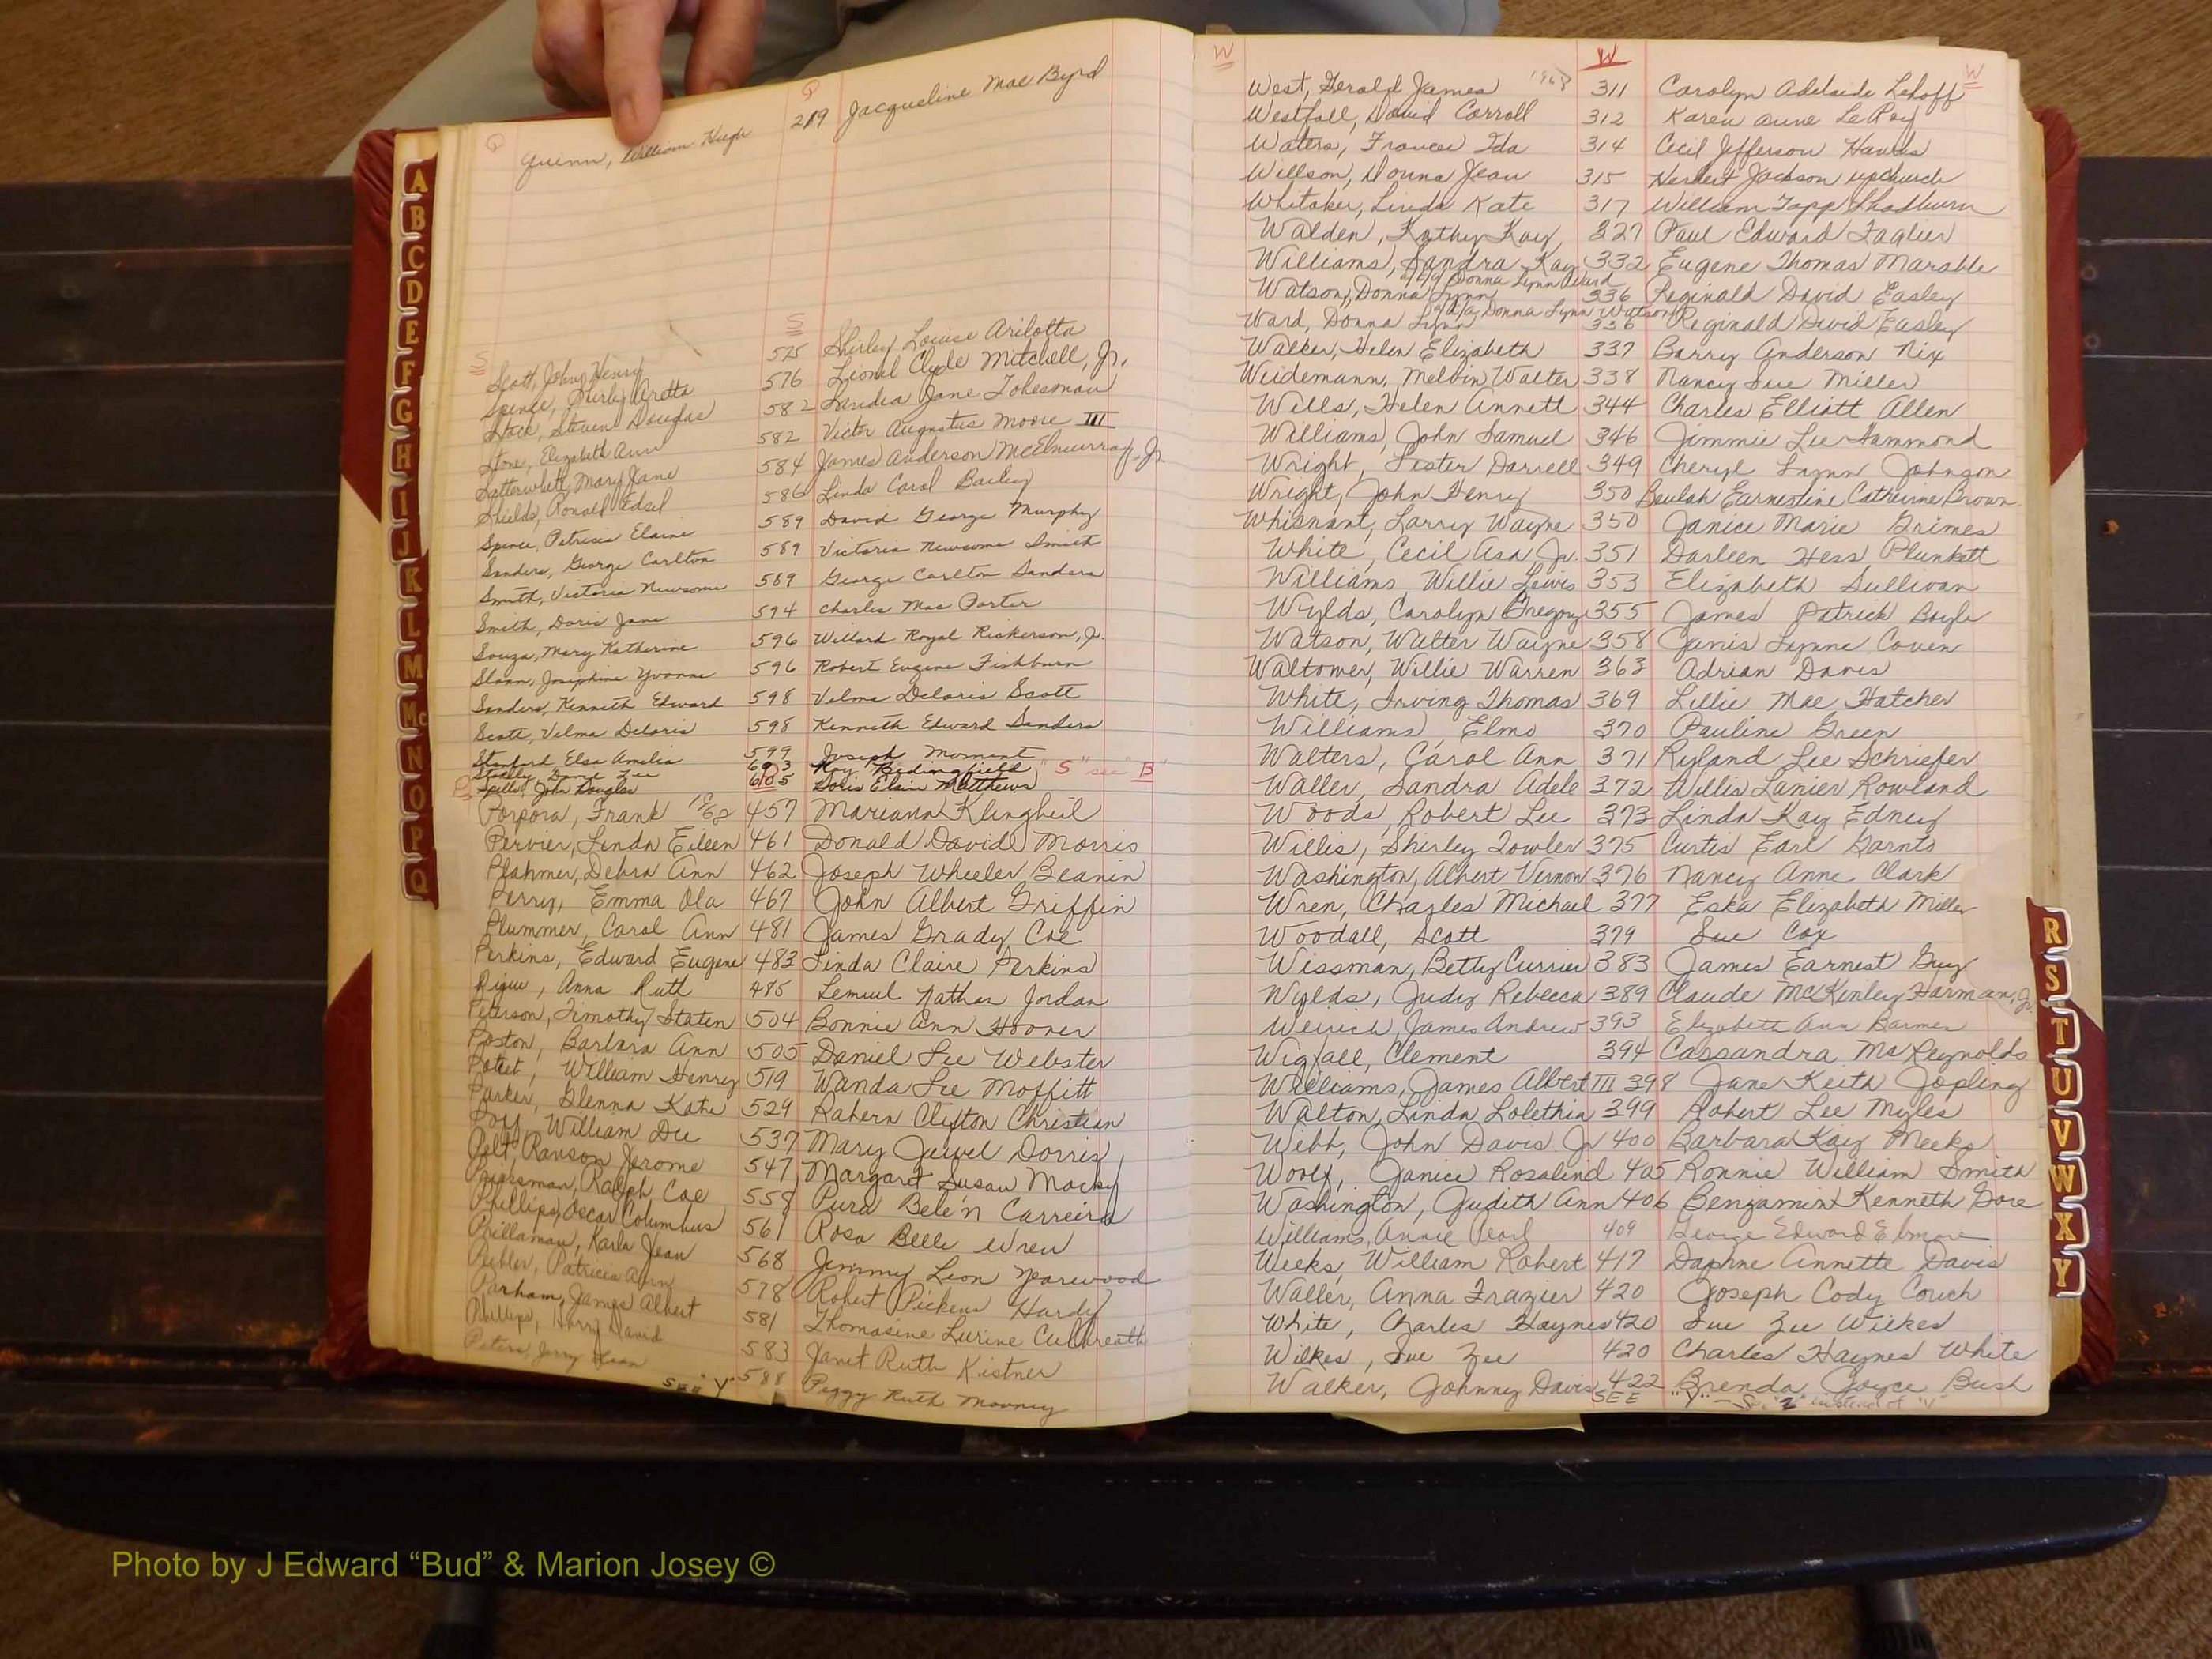 Q
Q
Quinn, William Hugh 219 Jacqueline Mae Byrd
S
S
Scott, John Henry 575 Shirley Louise Arilotta
Spence, Shirley Aretta 576 Lionel Clyde Mitchell, Jr.
Stack, Steven Douglas 582 Jane
Stone, Elizabeth Ann 582 Victor Augustus Moore III
Satterwhite, Mary Jane 584 James Anderson McElmurray, Jr.
Shields, Ronald Edsel 586 Linda Carol Bailey
Spence, Patricia Elaine 589 David George Murphy
Sanders, George Carlton 589 Victoria Newsome Smith
Smith, Victoria Newsome 589 George Carlton Sanders
Smith, Doris Jane 594 Charles Mac Porter
Souza, Mary Katherine 596 Willard Royal Rickerson, Jr.
Sloan, Josephine Yvonne 596 Robert Eugene Fishburn
Sanders, Kenneth Edward 598 Velma Deloris Scott
Scott, Velma Deloris 598 Kenneth Edward Sanders
Stanford, Elsa Amelia 599 Joseph Moment
603 Roy Bedingfield "S" see "B"
Spills, John Douglas 605 Doris Elain Matthews
P
Porpora, Frank 457 Mariann Klingbeil
Pervier, Linda Eileen 461 Donald David Morris
Pfahmer, Debra Ann 462 Joseph Wheeler Beanin
Perry, Emma Ola 467 John Albert Griffin
Plummer, Carol Ann 481 James Grady Coe
Perkins, Edward Eugene 483 Linda Claire Perkins
Anna Ruth 485 Lemuel Nathan Jordan
Peterson, Timothy Staten 504 Bonnie Ann Hooner
Poston, Barbara Ann 505 Daniel Lee Webster
Poteet, William Henry 519 Wanda Lee Moffitt
Parker, Glenna Kate 529 Rahern Clifton Christian
William Dee 537 Mary Jewel Dorris
Pelt, Ranson Jerome 547 Margaret Susan Macky
Ralph Coe 558 Pura Belén Carreira
Phillips, Oscar Columbus 561 Rosa Belle Wren
Prillaman, Karla Jean 568 Jimmy Leon Yarwood
Peebler, Patricia Ann 578 Robert Pickens Hardy
Parham, James Albert 581 Thomasine Lurine Culbreath
Phillips, Harry David 583 Janet Ruth Kistner
Peters, Jerry Dean 588 Peggy Ruth Mooney
SEE "Y"
W
W
W
West, Gerald James 1968 311 Carolyn Adelaide Lehoff
Westfall, David Carroll 312 Karen Anne LeRoy
Waters, Frances Ida 314 Cecil Jefferson Hawes
Willson, Donna Jean 315 Herbert Jackson Upchurch
Whitaker, Linda Kate 317 William Tapp Shadburn
Walden, Kathy Kay 327 Paul Edward Faglier
Williams, Sandra Kay 332 Eugene Thomas Marable
Watson, Donna Lynn a/k/a Donna Lynn Ward 336 Reginald David Easley
Ward, Donna Lynn a/k/a Donna Lynn Watson 336 Reginald David Easley
Walker, Helen Elizabeth 337 Barry Anderson Nix
Weidemann, Melvin Walter 338 Nancy Sue Miller
Wills, Helen Annett 344 Charles Elliott Allen
Williams, John Samuel 346 Jimmie Lee Hammond
Wright, Lester Darrell 349 Cheryl Lynn Johnson
Wright, John Henry 350 Beulah Earnestine Catherine Brown
Whisnant, Larry Wayne 350 Janice Marie Grimes
White, Cecil Asa Jr. 351 Darleen Hess Plunkett
Williams Willie Lewis 353 Elizabeth Sullivan
Wylds, Carolyn Gregory 355 James Patrick Boyle
Watson, Walter Wayne 358 Janis Lynne Coven
Waltower, Willie Warren 363 Adrian Davis
White, Irving Thomas 369 Lillie Mae Hatcher
Williams, Elmo 370 Pauline Green
Walters, Carol Ann 371 Ryland Lee Schriefer
Waller, Sandra Adele 372 Willis Lanier Rowland
Woods, Robert Lee 373 Linda Kay Edney
Willis, Shirley Fowler 375 Curtis Earl Garnto
Washington, Albert Vernon 376 Nancy Anne Clark
Wren, Charles Michael 377 Eska Elizabeth Miller
Woodall, Scott 379 Sue Cox
Wissman, Betty Currier 383 James Earnest Guy
Wylds, Judy Rebecca 389 Claude McKinley Harman, Jr.
Weirich, James Andrew 393 Elizabeth Ann Barmer
Wigfall, Clement 394 Cassandra McReynolds
Williams, James Albert III 398 Jane Keith Jopling
Walton, Linda Lolethia 399 Robert Lee Myles
Webb, John Davis Jr 400 Barbara Kay Meeks
Woolf, Janice Rosalind 405 Ronnie William Smith
Washington, Judith Ann 406 Benjamin Kenneth Gore
Williams, Annie Pearl 409 George Edward Elmore
Weeks, William Robert 417 Daphne Annette Davis
Waller, Anna Frazier 420 Joseph Cody Couch
White, Charles Haynes 420 Sue Zee Wilkes
Wilkes, Sue Zee 420 Charles Haynes White
Walker, Johnny Davis 422 Brenda Joyce Bush
SEE "Y" instead of "V"
A
B
C
D
E
F
G
H
I
J
K
L
M
Mc
N
O
P
Q
R
S
T
U
V
W
X
Y
Photo by J Edward “Bud” & Marion Josey ©